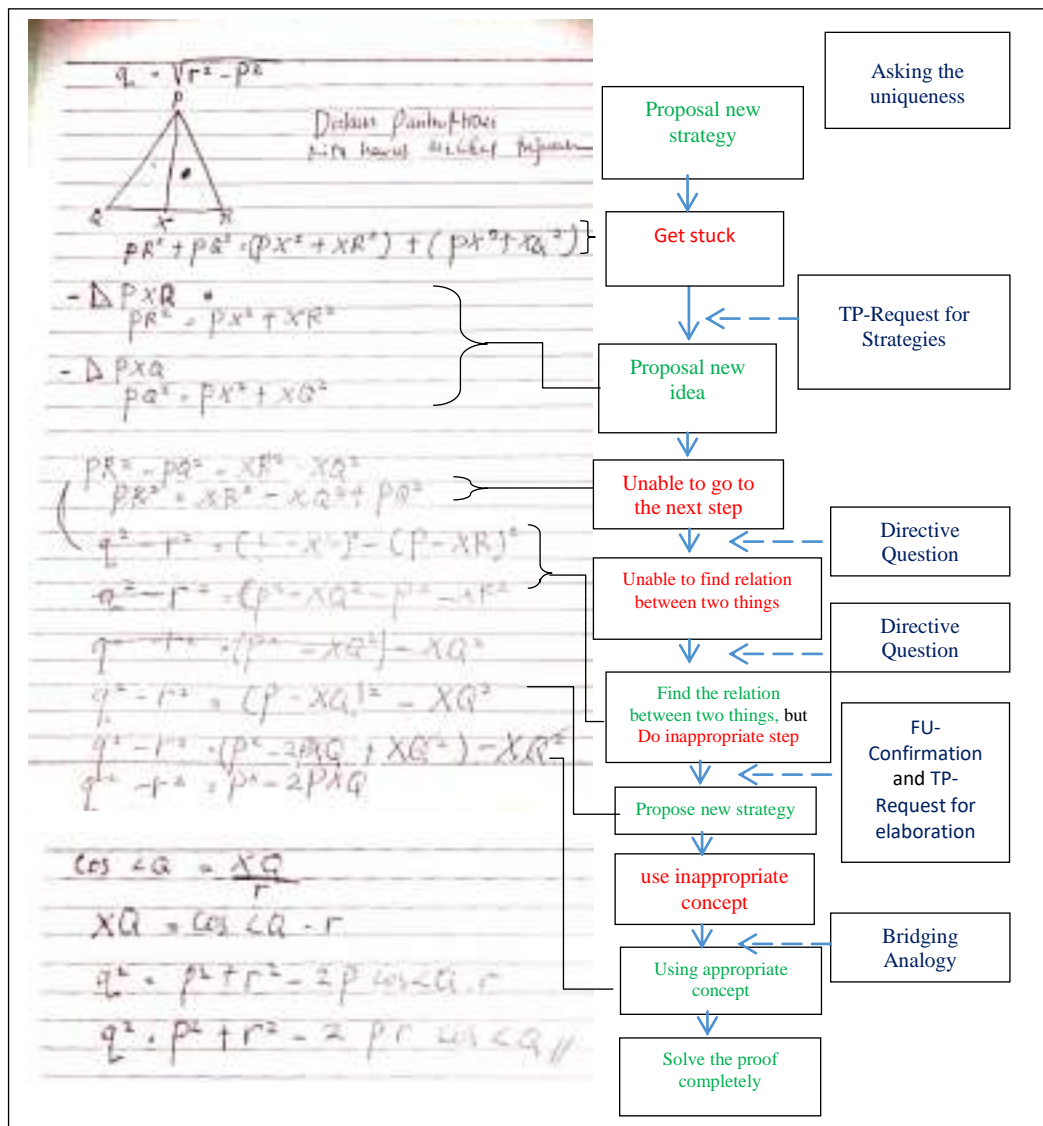 q = √r² - p²
P
Q X R
PR² + PQ² = (PX² + XR²) + (PX² + XQ²)
- Δ PXR
PR² = PX² + XR²
- Δ PXQ
PQ² = PX² + XQ²
PR² - PQ² = XR² - XQ²
PR² = XR² - XQ² + PQ²
q² - r² = (P - XR)²
q² - r² = (p² - XQ² - p² - XR²
q² - r² = (p² - XQ²) - XQ²
q² - r² = (p - XQ)² - XQ²
q² - r² = (p² - 2PXQ + XQ²) - XQ²
q² - r² = p² - 2PXQ
cos ∠Q = XQ
r
XQ = cos ∠Q · r
q² = p² + r² - 2p cos ∠Q · r
q² = p² + r² - 2 pr cos ∠Q //
Proposal new
strategy
Get stuck
Proposal new
idea
Unable to go to
the next step
Unable to find relation
between two things
Find the relation
between two things, but
Do inappropriate step
Propose new strategy
use inappropriate
concept
Using appropriate
concept
Solve the proof
completely
Asking the
uniqueness
TP-Request for
Strategies
Directive
Question
Directive
Question
FU-
Confirmation
and TP-
Request for
elaboration
Bridging
Analogy